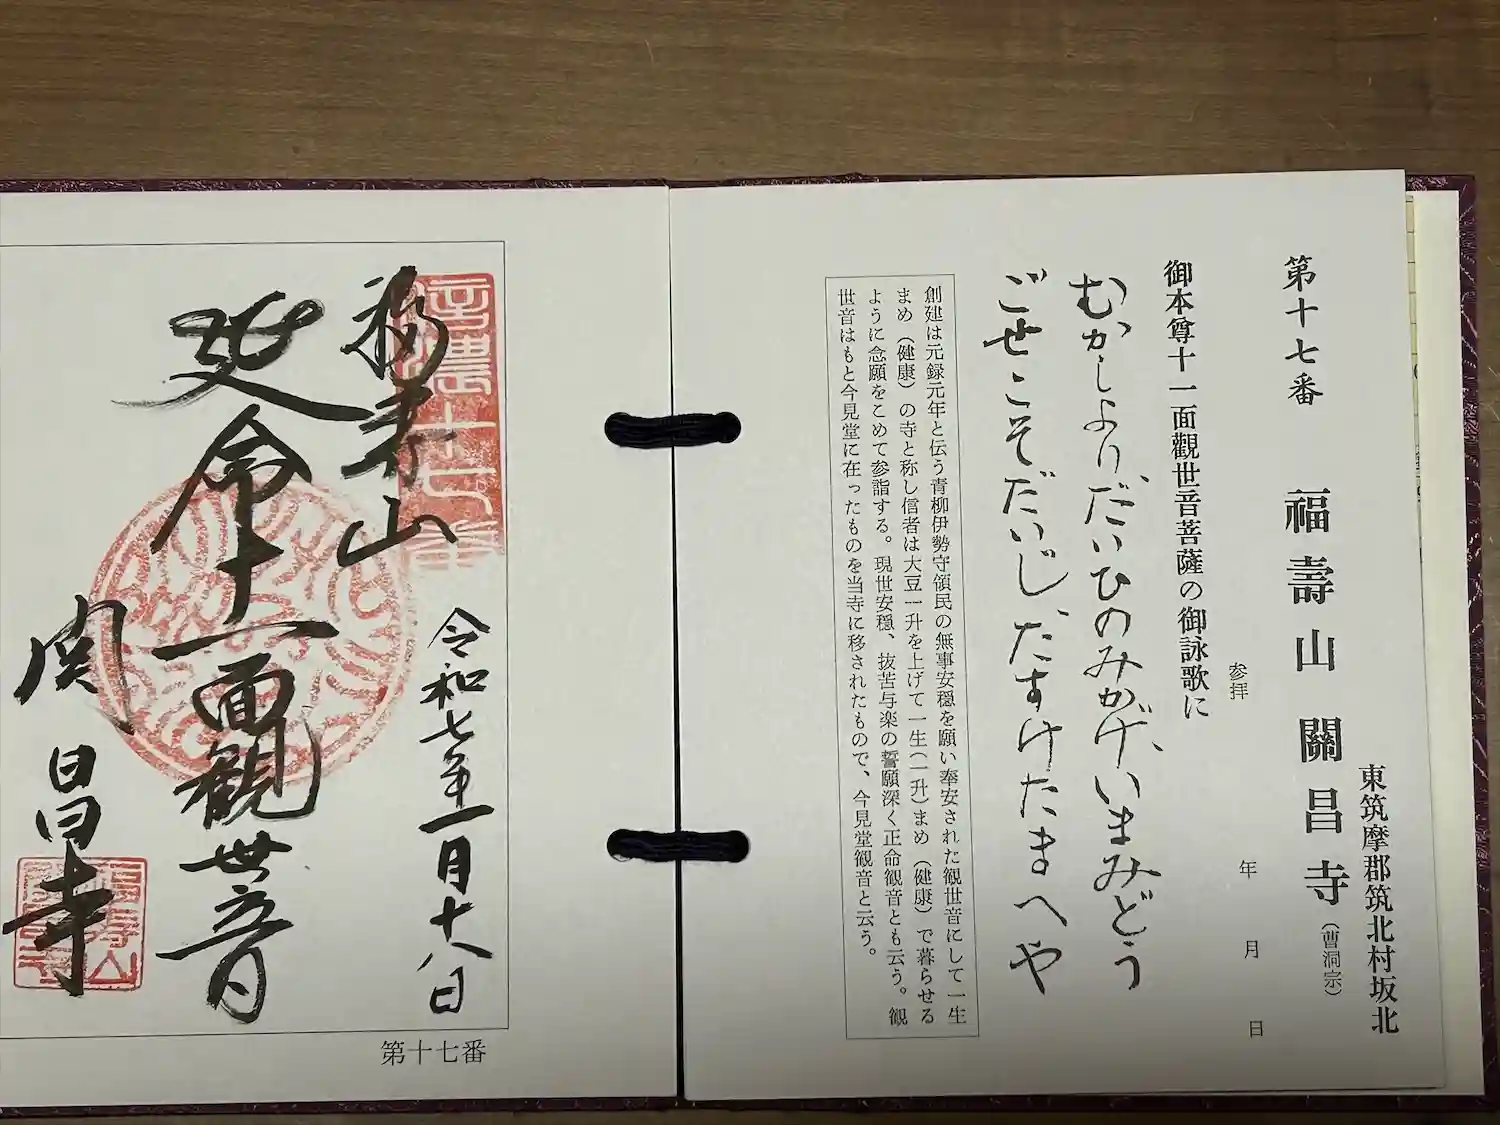 東筑摩郡筑北村坂北
第十七番 福壽山 關昌寺（曹洞宗）
参拝 年 月 日
御本尊十一面觀世音菩薩の御詠歌に
むかしより、だいひのみかげ、いまみどう
ごせこそだいじ、たすけたまへや
創建は元録元年と伝う青柳伊勢守領民の無事安穏を願い奉安された観世音にして一生
まめ（健康）の寺と称し信者は大豆一升を上げて一生（一升）まめ（健康）で暮らせる
ように念願をこめて参詣する。現世安穏、抜苦与楽の誓願深く正命観音とも云う。観
世音はもと今見堂に在ったものを当寺に移されたもので、今見堂観音と云う。
信濃十七番
福寿山
令和七年一月十八日
延命十一面観世音
関昌寺
第十七番